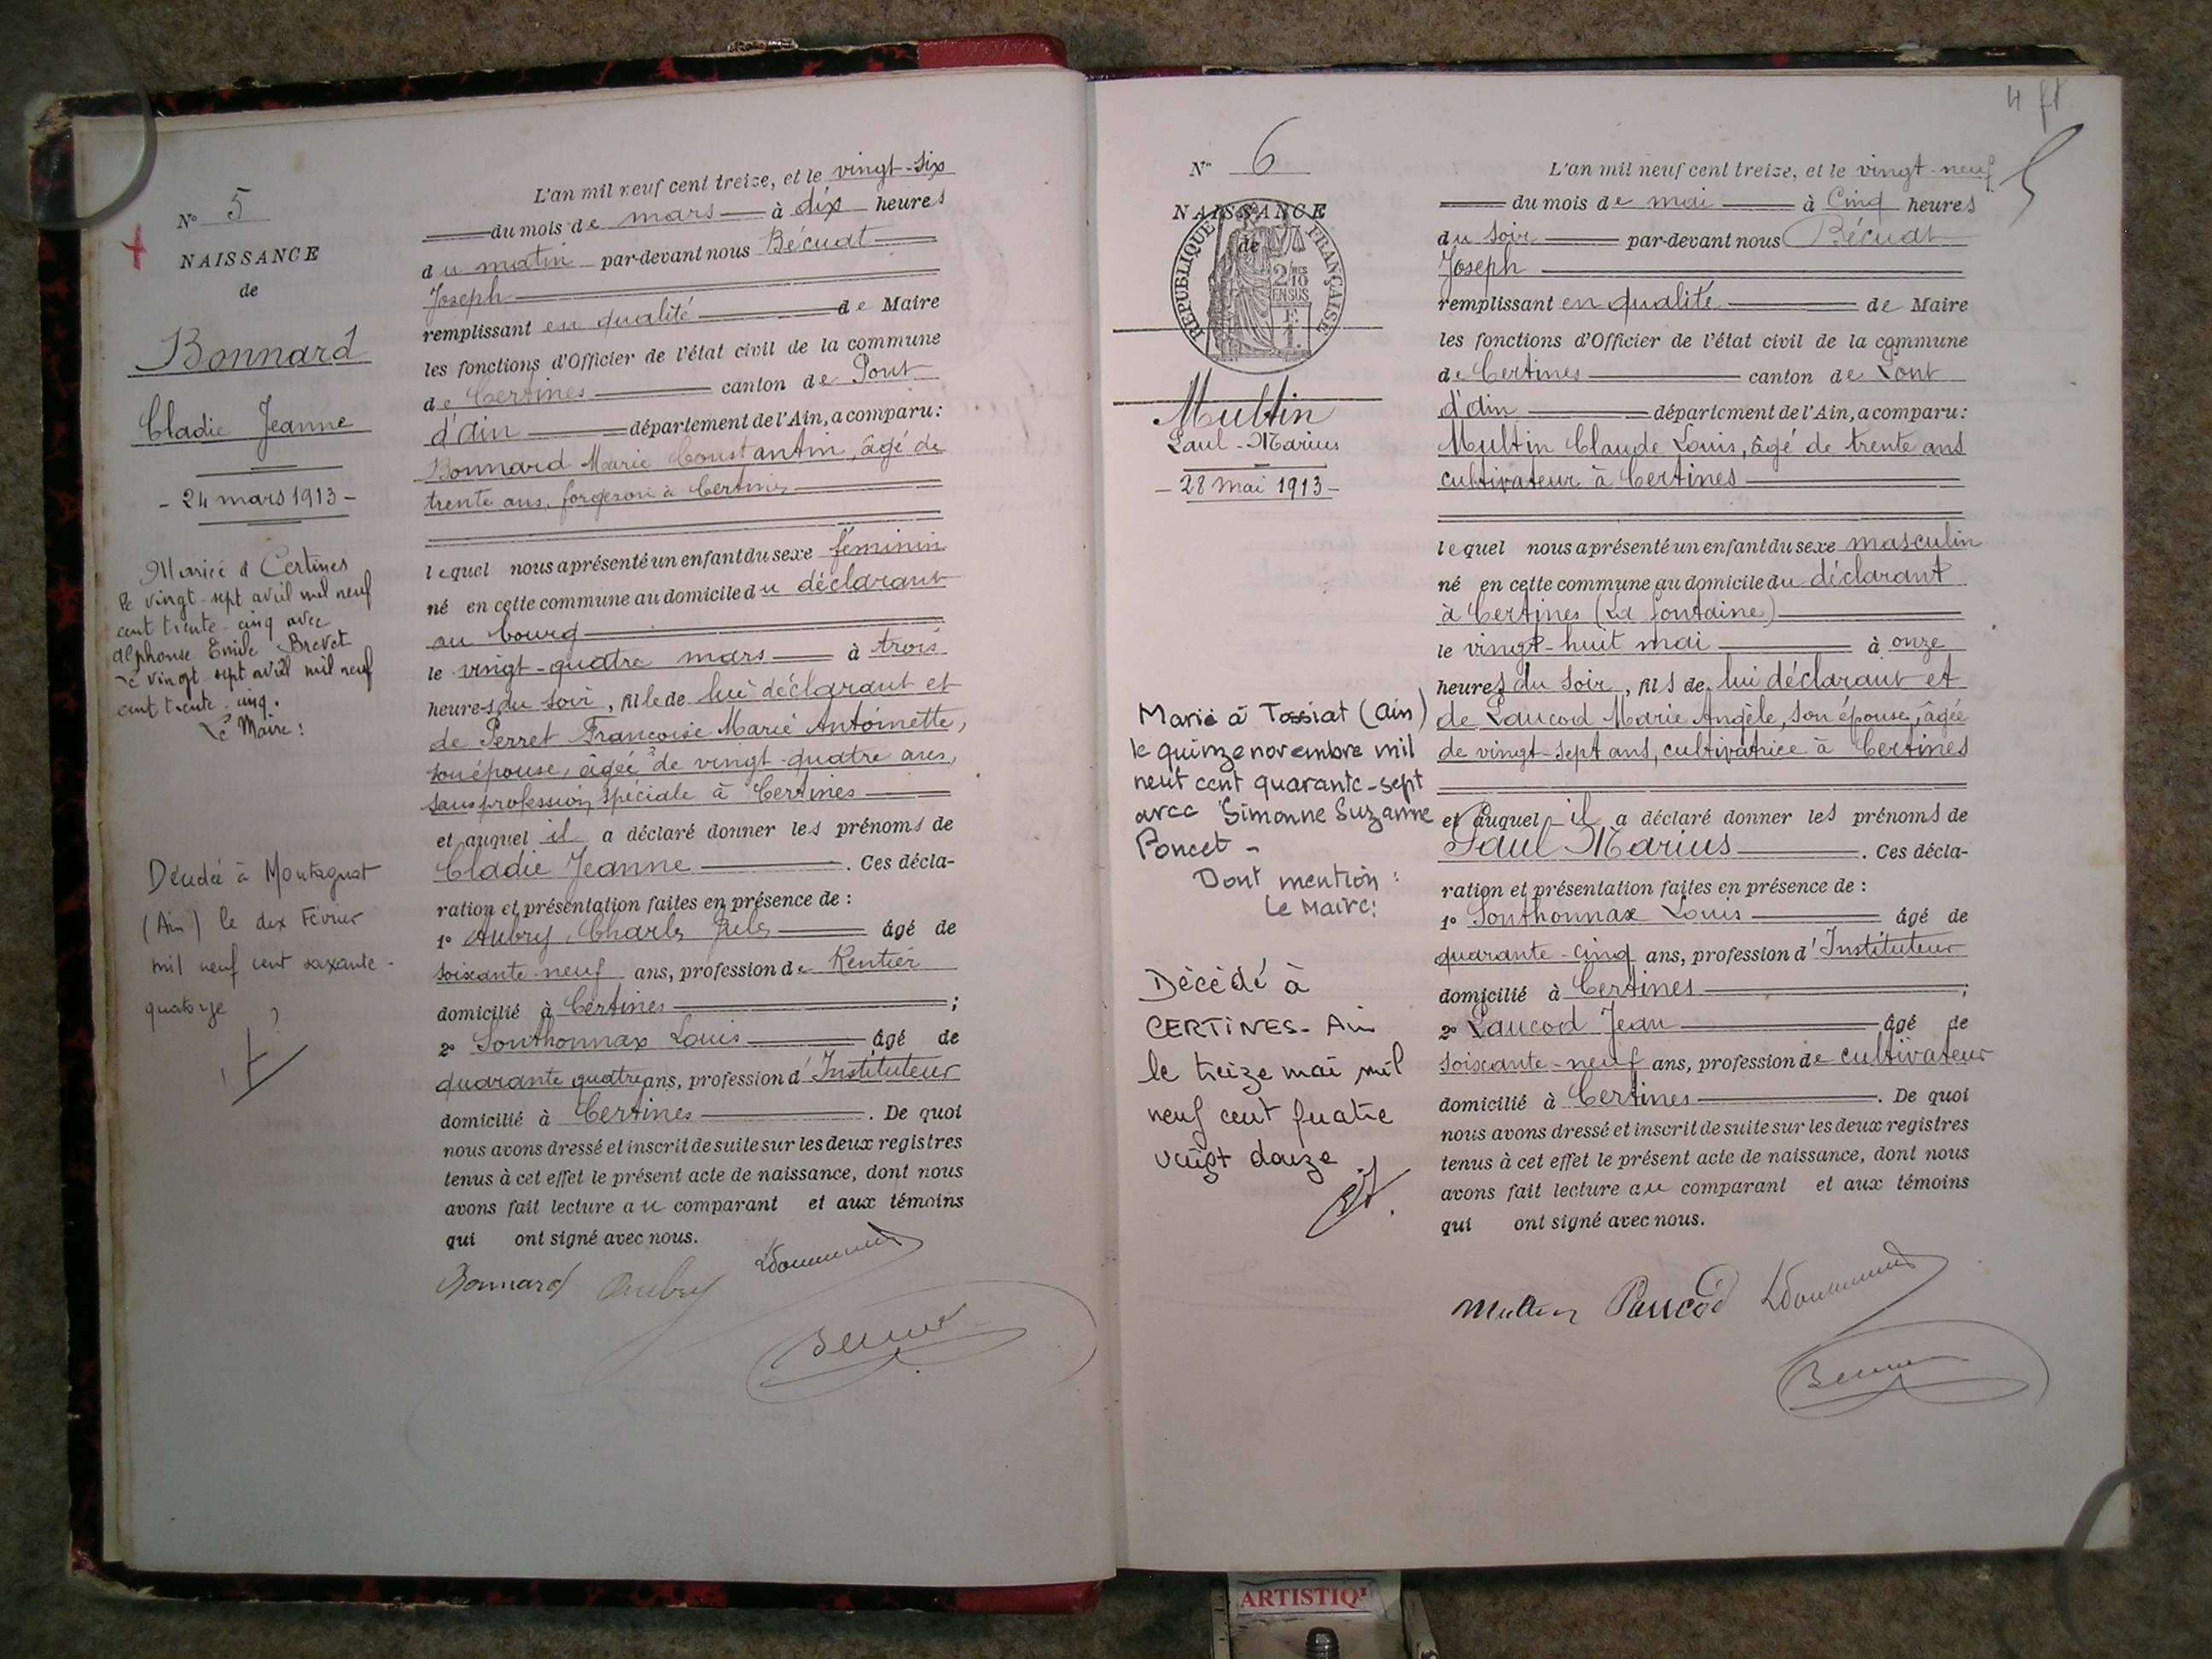 N° 5
NAISSANCE
de
Bonnard
Cladie Jeanne
- 24 mars 1913 -
Mariée à Certines
le vingt-sept avril mil neuf
cent trente-cinq avec
Alphonse Emile Brevet
le vingt-sept avril mil neuf
cent trente-cinq.
Le Maire :
Décédée à Montagnat
(Ain) le dix Février
mil neuf cent soixante-
quatorze
L'an mil neuf cent treize, et le vingt-six
du mois de mars à dix heures
du matin par-devant nous Bécuat
Joseph
remplissant en qualité de Maire
les fonctions d'Officier de l'état civil de la commune
de Certines canton de Pont
d'Ain département de l'Ain, a comparu :
Bonnard Marie Constantin, âgé de
trente ans, forgeron à Certines
lequel nous a présenté un enfant du sexe féminin
né en cette commune au domicile du déclarant
au bourg
le vingt-quatre mars à trois
heures du soir, fille de lui déclarant et
de Perret Françoise Marie Antoinette,
son épouse, âgée de vingt-quatre ans,
sans profession spéciale à Certines
et auquel il a déclaré donner les prénoms de
Cladie Jeanne . Ces décla-
ration et présentation faites en présence de :
1° Aubry Charles Jules âgé de
soixante-neuf ans, profession de Rentier
domicilié à Certines ;
2° Southonnax Louis âgé de
quarante quatre ans, profession d'Instituteur
domicilié à Certines . De quoi
nous avons dressé et inscrit de suite sur les deux registres
tenus à cet effet le présent acte de naissance, dont nous
avons fait lecture au comparant et aux témoins
qui ont signé avec nous.
Bonnard Aubry
4 ft
N° 6
NAISSANCE
de
RÉPUBLIQUE FRANÇAISE
2/10 MES
EN SUS
F.
1.
Multin
Paul-Marius
- 28 mai 1913 -
Marié à Tossiat (Ain)
le quinze novembre mil
neuf cent quarante-sept
avec Simonne Suzanne
Poncet -
Dont mention :
Le Maire :
Décédé à
CERTINES - Ain
le treize mai mil
neuf cent quatre
vingt douze
L'an mil neuf cent treize, et le vingt-neuf
du mois de mai à Cinq heures
du soir par-devant nous Bécuat
Joseph
remplissant en qualité de Maire
les fonctions d'Officier de l'état civil de la commune
de Certines canton de Pont
d'Ain département de l'Ain, a comparu :
Multin Claude Louis, âgé de trente ans
cultivateur à Certines
lequel nous a présenté un enfant du sexe masculin
né en cette commune au domicile du déclarant
à Certines (La Fontaine)
le vingt-huit mai à onze
heures du soir, fils de lui déclarant et
de Paucod Marie Angèle, son épouse, âgée
de vingt-sept ans, cultivatrice à Certines
et auquel il a déclaré donner les prénoms de
Paul Marius . Ces décla-
ration et présentation faites en présence de :
1° Southonnax Louis âgé de
quarante-cinq ans, profession d'Instituteur
domicilié à Certines ;
2° Paucod Jean âgé de
soixante-neuf ans, profession de cultivateur
domicilié à Certines . De quoi
nous avons dressé et inscrit de suite sur les deux registres
tenus à cet effet le présent acte de naissance, dont nous
avons fait lecture au comparant et aux témoins
qui ont signé avec nous.
Multin Paucod
ARTISTIQ